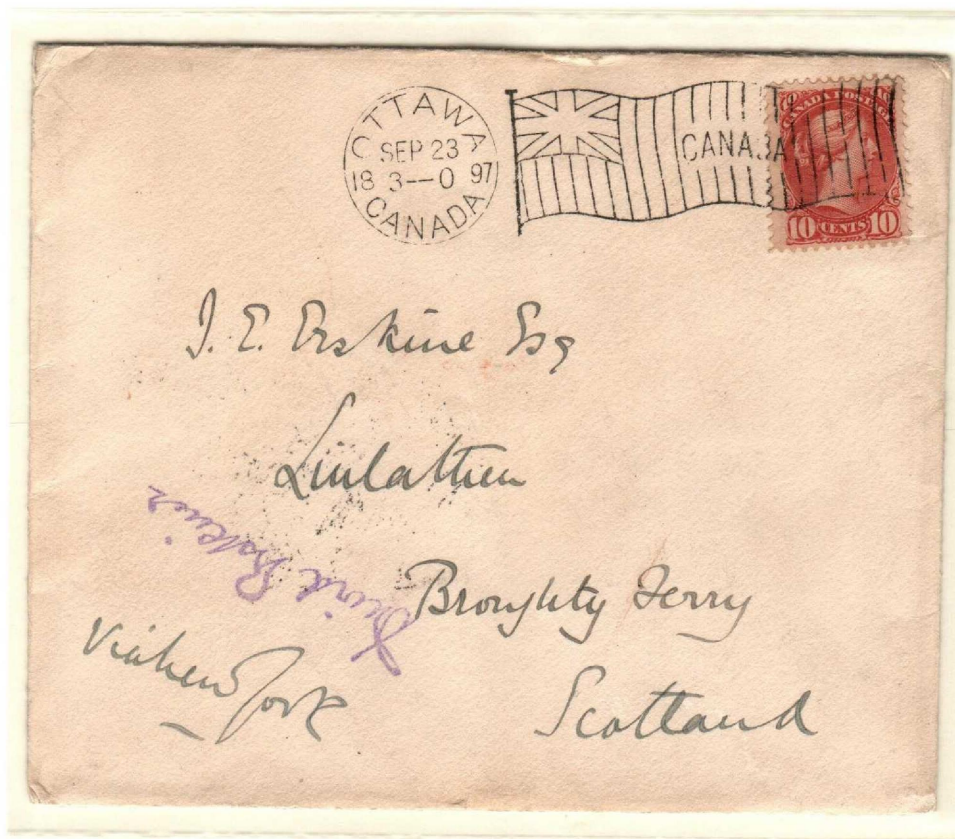 OTTAWA
SEP 23
18 3—0 97
CANADA
CANADA
CANADA POSTAGE
10 CENTS 10
J. E. Erskine Esq
Linlathen
Broughty Ferry
Scotland
Via New York
David